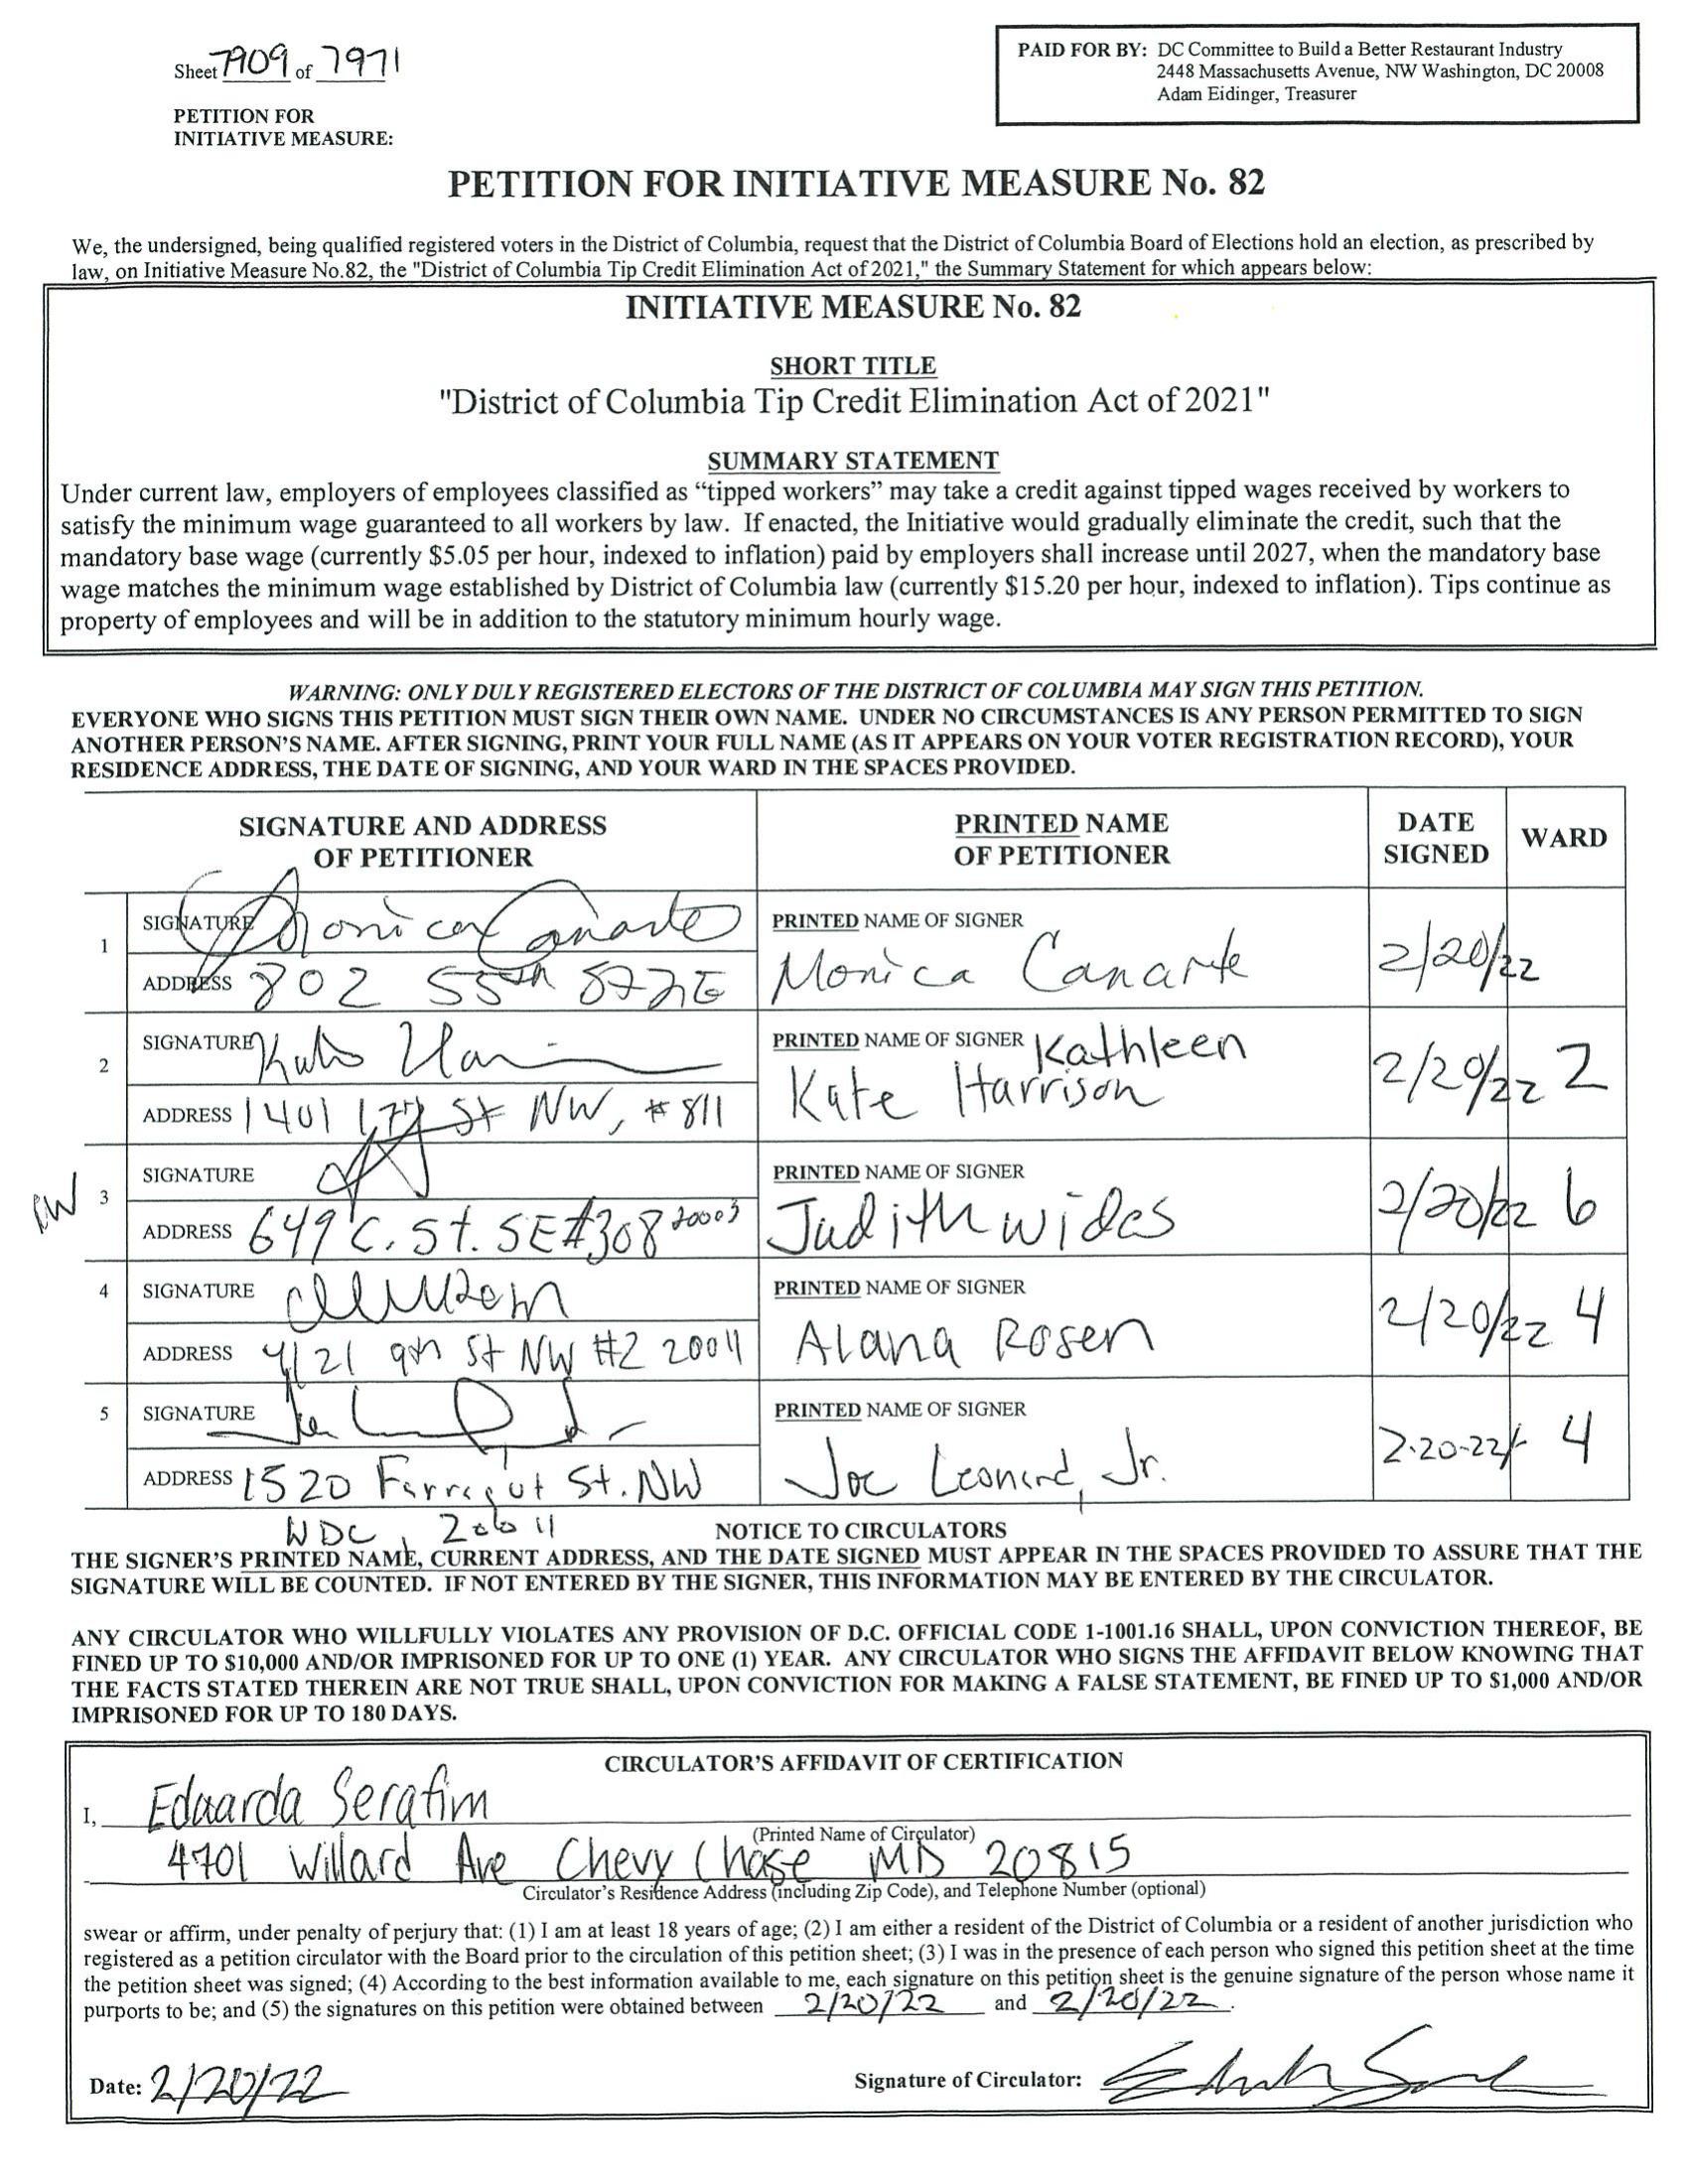 Sheet 7909 of 7971
PAID FOR BY: DC Committee to Build a Better Restaurant Industry
2448 Massachusetts Avenue, NW Washington, DC 20008
Adam Eidinger, Treasurer
PETITION FOR
INITIATIVE MEASURE:
PETITION FOR INITIATIVE MEASURE No. 82
We, the undersigned, being qualified registered voters in the District of Columbia, request that the District of Columbia Board of Elections hold an election, as prescribed by
law, on Initiative Measure No.82, the "District of Columbia Tip Credit Elimination Act of 2021," the Summary Statement for which appears below:
INITIATIVE MEASURE No. 82
SHORT TITLE
"District of Columbia Tip Credit Elimination Act of 2021"
SUMMARY STATEMENT
Under current law, employers of employees classified as “tipped workers” may take a credit against tipped wages received by workers to
satisfy the minimum wage guaranteed to all workers by law. If enacted, the Initiative would gradually eliminate the credit, such that the
mandatory base wage (currently $5.05 per hour, indexed to inflation) paid by employers shall increase until 2027, when the mandatory base
wage matches the minimum wage established by District of Columbia law (currently $15.20 per hour, indexed to inflation). Tips continue as
property of employees and will be in addition to the statutory minimum hourly wage.
WARNING: ONLY DULY REGISTERED ELECTORS OF THE DISTRICT OF COLUMBIA MAY SIGN THIS PETITION.
EVERYONE WHO SIGNS THIS PETITION MUST SIGN THEIR OWN NAME. UNDER NO CIRCUMSTANCES IS ANY PERSON PERMITTED TO SIGN
ANOTHER PERSON'S NAME. AFTER SIGNING, PRINT YOUR FULL NAME (AS IT APPEARS ON YOUR VOTER REGISTRATION RECORD), YOUR
RESIDENCE ADDRESS, THE DATE OF SIGNING, AND YOUR WARD IN THE SPACES PROVIDED.
SIGNATURE AND ADDRESS
OF PETITIONER
PRINTED NAME
OF PETITIONER
DATE
SIGNED
WARD
1
SIGNATURE Monica Canarte
ADDRESS 802 55th ST NE
PRINTED NAME OF SIGNER
Monica Canarte
2/20/22
2
SIGNATURE
ADDRESS 1401 17th St NW, #811
PRINTED NAME OF SIGNER Kathleen
Kate Harrison
2/20/22 2
3
SIGNATURE
ADDRESS 649 C. St. SE #308 20003
PRINTED NAME OF SIGNER
Judith Wides
2/20/22 6
4
SIGNATURE
ADDRESS 4121 9th St NW #2 20011
PRINTED NAME OF SIGNER
Alana Rosen
2/20/22 4
5
SIGNATURE
ADDRESS 1520 Farragut St. NW
WDC, 20011
PRINTED NAME OF SIGNER
Joe Leonard, Jr.
2-20-22 4
NOTICE TO CIRCULATORS
THE SIGNER'S PRINTED NAME, CURRENT ADDRESS, AND THE DATE SIGNED MUST APPEAR IN THE SPACES PROVIDED TO ASSURE THAT THE
SIGNATURE WILL BE COUNTED. IF NOT ENTERED BY THE SIGNER, THIS INFORMATION MAY BE ENTERED BY THE CIRCULATOR.
ANY CIRCULATOR WHO WILLFULLY VIOLATES ANY PROVISION OF D.C. OFFICIAL CODE 1-1001.16 SHALL, UPON CONVICTION THEREOF, BE
FINED UP TO $10,000 AND/OR IMPRISONED FOR UP TO ONE (1) YEAR. ANY CIRCULATOR WHO SIGNS THE AFFIDAVIT BELOW KNOWING THAT
THE FACTS STATED THEREIN ARE NOT TRUE SHALL, UPON CONVICTION FOR MAKING A FALSE STATEMENT, BE FINED UP TO $1,000 AND/OR
IMPRISONED FOR UP TO 180 DAYS.
CIRCULATOR'S AFFIDAVIT OF CERTIFICATION
I, Eduarda Serafim
(Printed Name of Circulator)
4701 Willard Ave Chevy Chase MD 20815
Circulator's Residence Address (including Zip Code), and Telephone Number (optional)
swear or affirm, under penalty of perjury that: (1) I am at least 18 years of age; (2) I am either a resident of the District of Columbia or a resident of another jurisdiction who
registered as a petition circulator with the Board prior to the circulation of this petition sheet; (3) I was in the presence of each person who signed this petition sheet at the time
the petition sheet was signed; (4) According to the best information available to me, each signature on this petition sheet is the genuine signature of the person whose name it
purports to be; and (5) the signatures on this petition were obtained between 2/20/22 and 2/20/22.
Date: 2/20/22
Signature of Circulator: